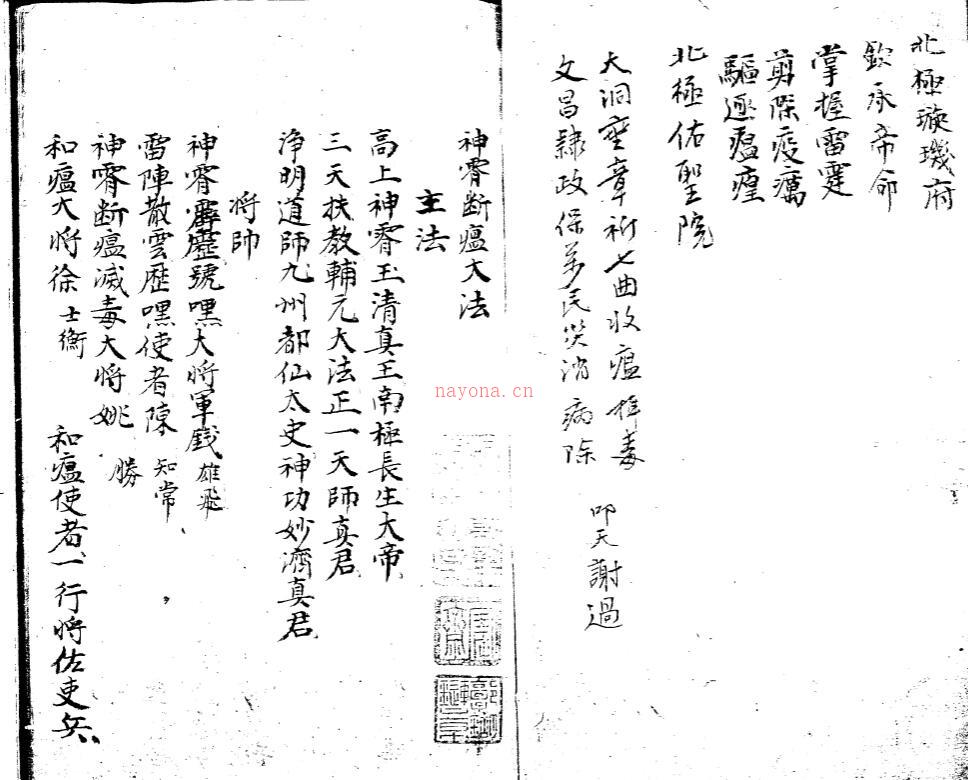 北極璇璣府
欽承帝命
掌握雷霆
剪除疫癘
驅逐瘟㾮
北極佑聖院
大洞靈章祈七曲收瘟攝毒 叩天謝過
文昌隸政保萬民災消病除
神霄断瘟大法
主法
高上神霄玉清真王南極長生大帝
三天扶教輔元大法正一天師真君
淨明道師九州都仙太史神功妙濟真君
将帥
神霄霹靂號嘿大将軍錢雄飛
雷陣散雲歷嘿使者陳知常
神霄断瘟滅毒大将姚勝
和瘟大将徐士衡 和瘟使者一行将佐吏兵
nayona.cn